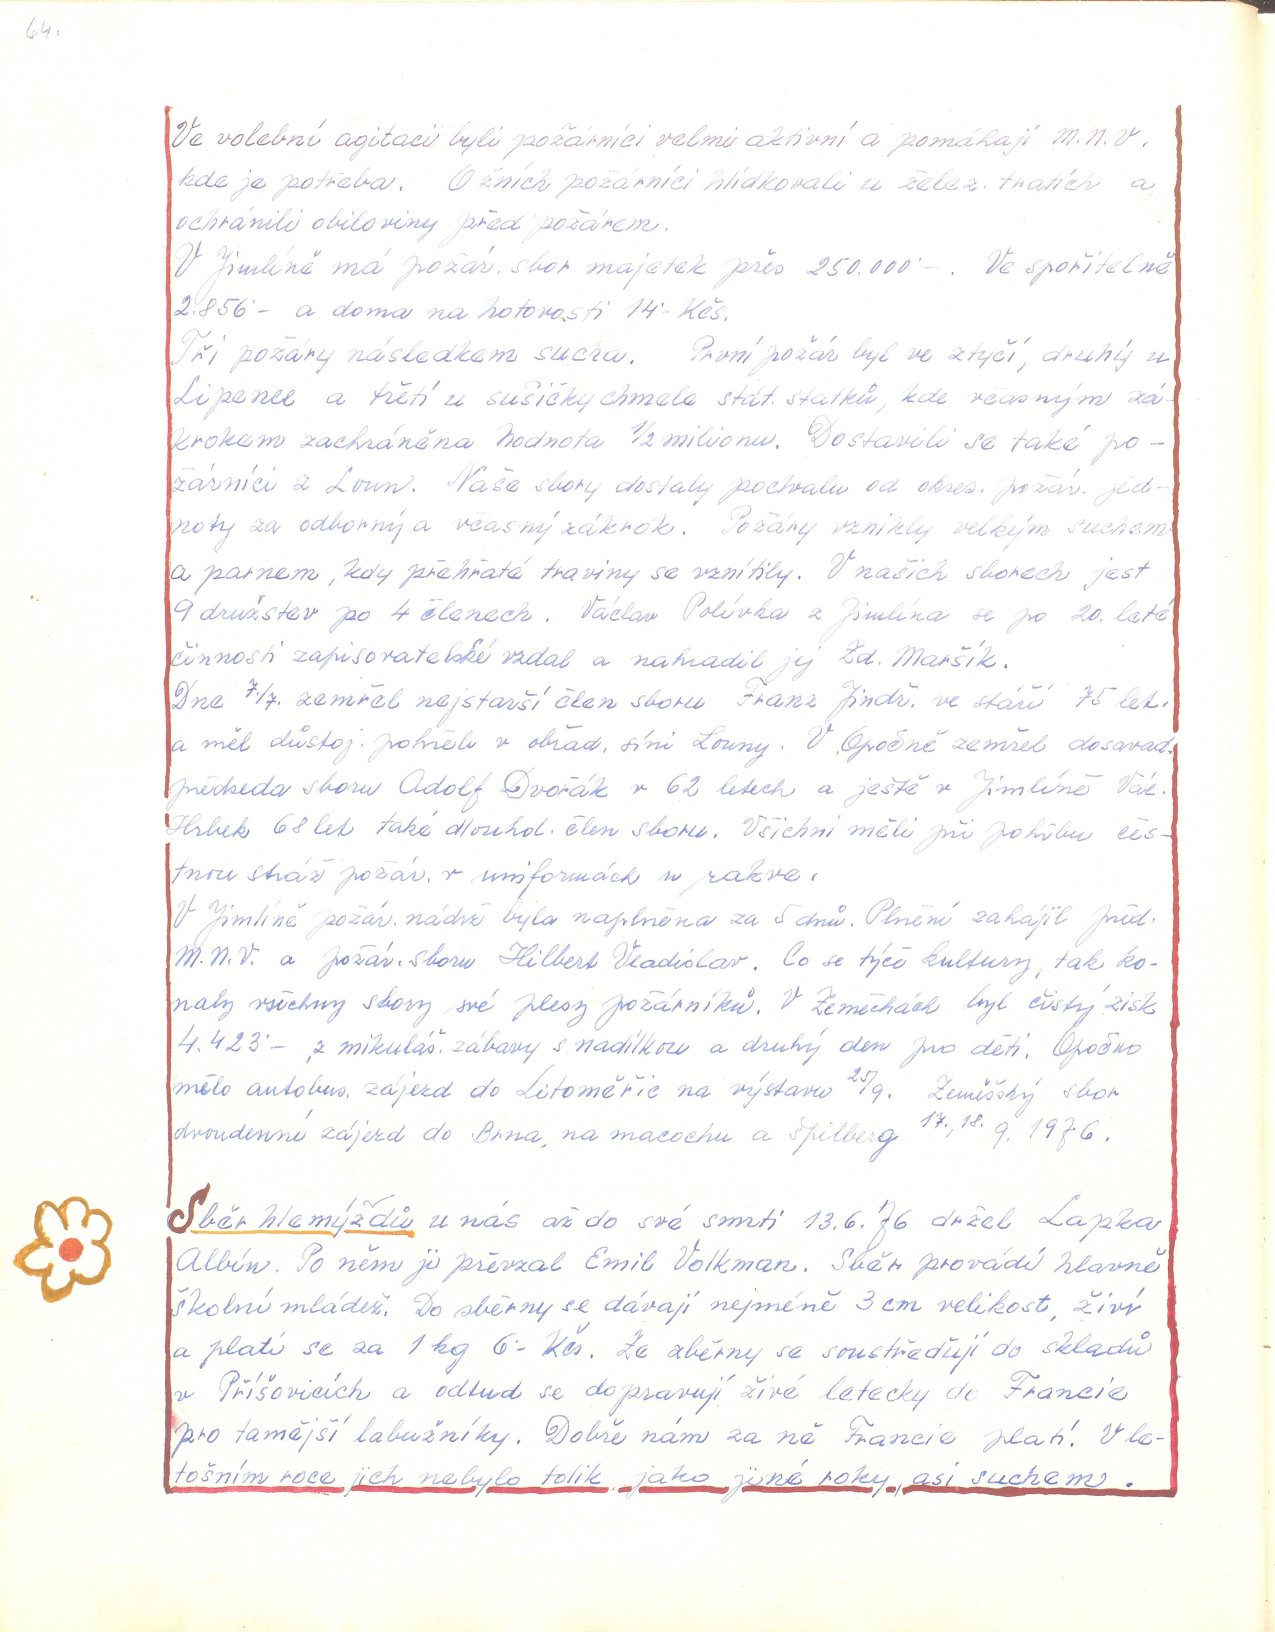 64.
Ve volební agitaci byli požárníci velmi aktivní a pomáhají M.N.V.
kde je potřeba. O žních požárníci hlídkovali u želez. tratích a
ochránili obiloviny před požárem.
V Jimlíně má požár. sbor majetek přes 250.000·-. Ve spořitelně
2.856·- a doma na hotovosti 14·- Kčs.
Tři požáry následkem sucha. První požár byl ve ztyčí, druhý u
Lipence a třetí u sušičky chmele stát. statků, kde včasným zá-
krokem zachráněna hodnota 1/2 milionu. Dostavili se také po-
žárníci z Loun. Naše sbory dostaly pochvalu od okres. požár. jed-
noty za odborný a včasný zákrok. Požáry vznikly velkým suchem
a parnem, kdy přehřáté traviny se vznítily. V našich sborech jest
9 družstev po 4 členech. Václav Polívka z Jimlína se po 20. leté
činnosti zapisovatelské vzdal a nahradil jej Zd. Maršík.
Dne 7./7. zemřel nejstarší člen sboru Franz Jindř. ve stáří 75 let.
a měl důstoj. pohřeb v obřad. síni Louny. V Opočně zemřel dosavad.
předseda sboru Adolf Dvořák v 62 letech a ještě v Jimlíně Vác.
Hrbek 68 let také dlouhol. člen sboru. Všichni měli při pohřbu čes-
tnou stráž požár. v uniformách u rakve.
V Jimlíně požár. nádrž byla naplněna za 5 dnů. Plnění zahájil před.
M.N.V. a požár. sboru Hilbert Vladislav. Co se týče kultury, tak ko-
naly všechny sbory své plesy požárníků. V Zeměchách byl čistý zisk
4.423·- z mikuláš. zábavy s nadílkou a druhý den pro děti. Opočno
mělo autobus. zájezd do Litoměřic na výstavu 25/9. Zeměšský sbor
dvoudenní zájezd do Brna, na macochu a špilberg 17., 18. 9. 1976.
Sběr hlemýžďů u nás až do své smrti 13.6.'76 držel Lapka
Albín. Po něm ji převzal Emil Volkman. Sběr provádí hlavně
školní mládež. Do sběrny se dávají nejméně 3 cm velikost, živí
a platí se za 1 kg 6·- Kčs. Ze zběrny se soustřeďují do skladů
v Příšovicích a odtud se dopravují živé letecky do Francie
pro tamější labužníky. Dobře nám za ně Francie platí. V le-
tošním roce jich nebylo tolik, jako jiné roky, asi suchem.